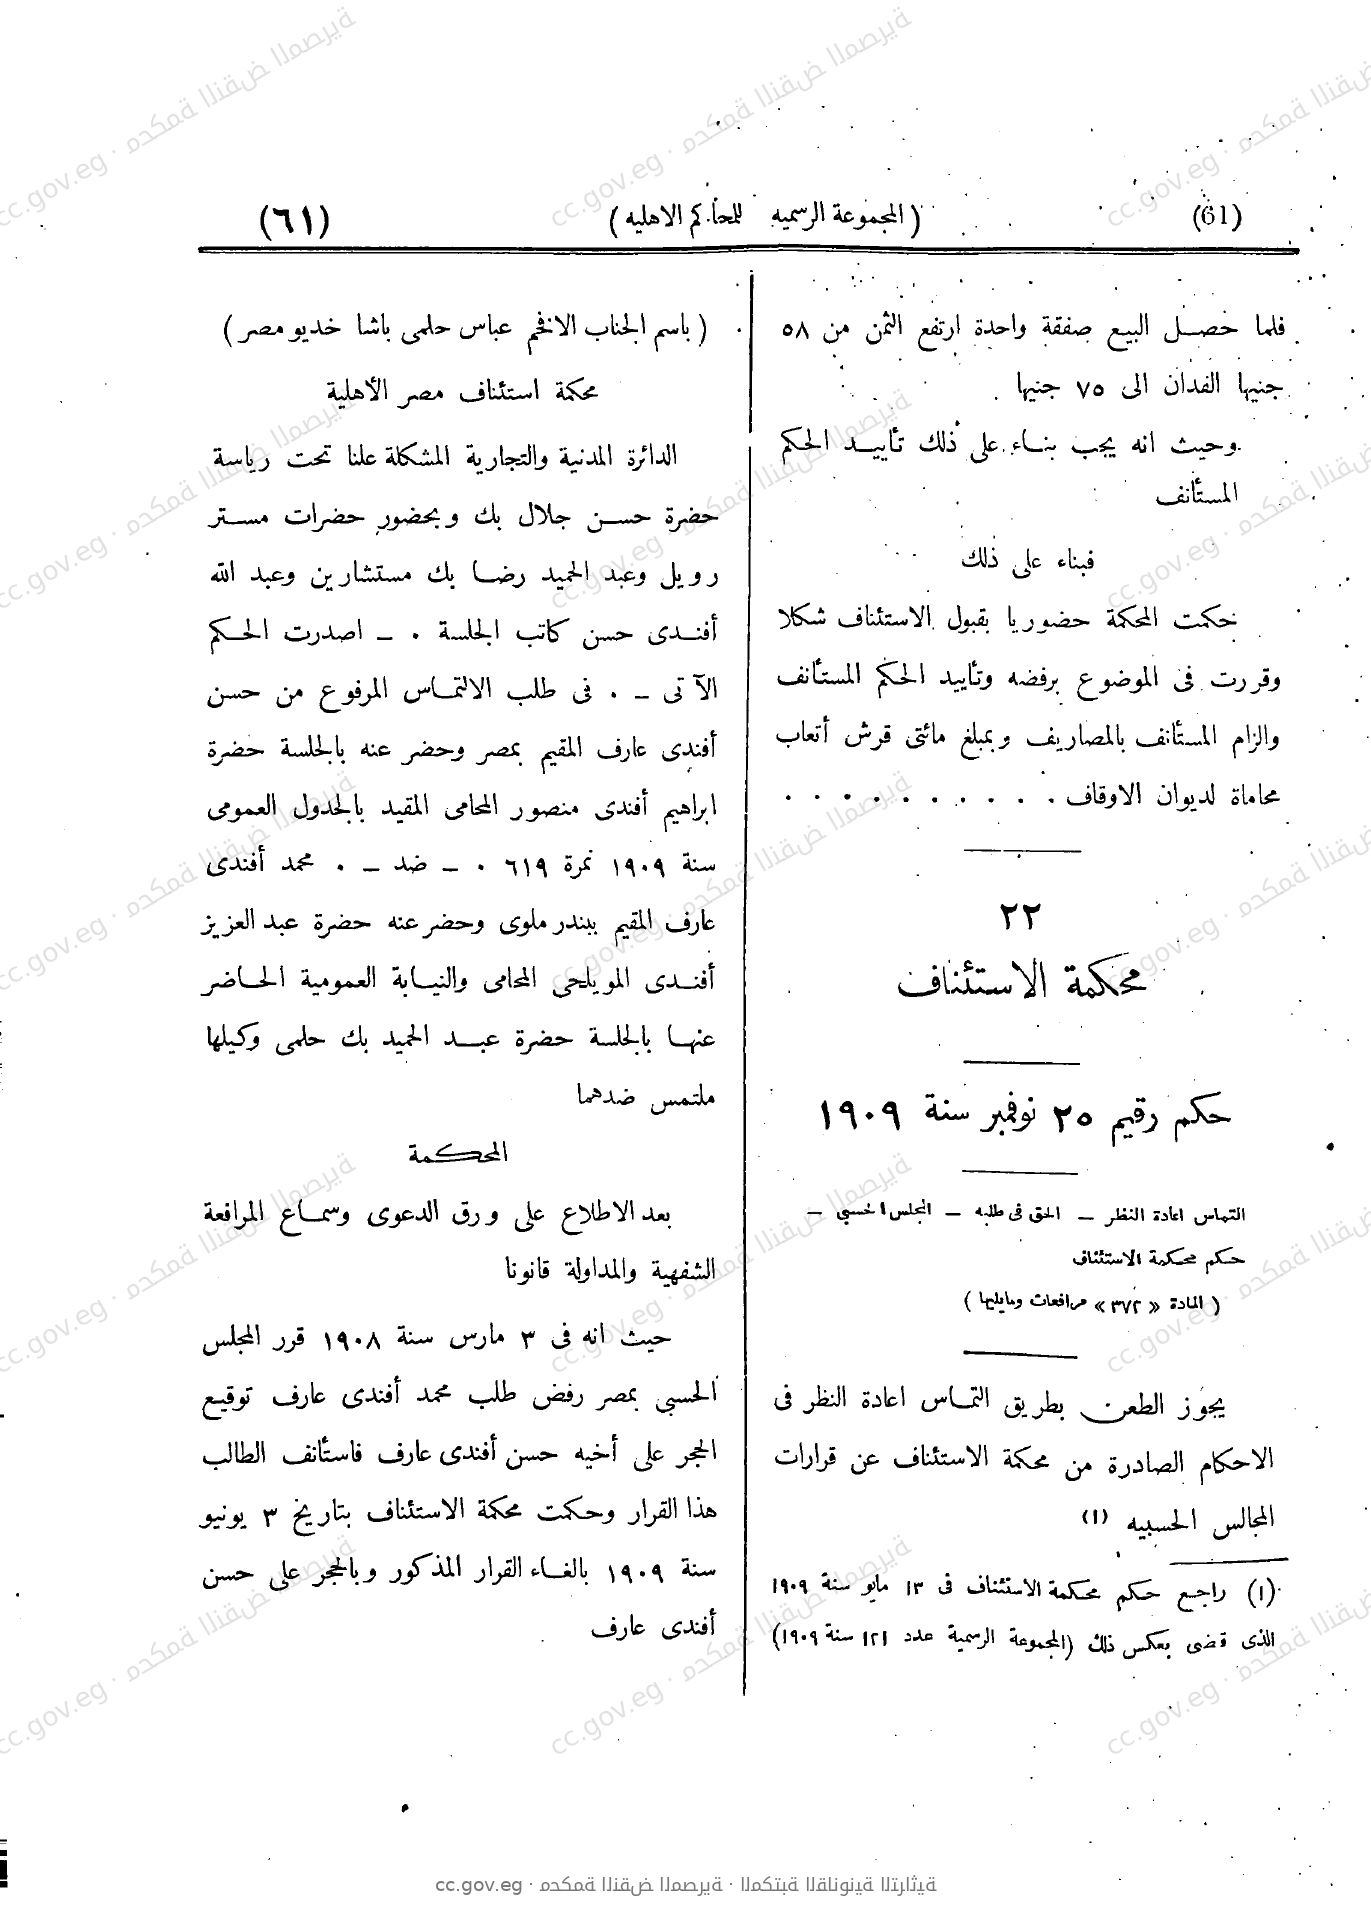 (61) ( المجموعة الرسميه للمحاكم الاهليه ) (٦١)
فلما حصل البيع صفقة واحدة ارتفع الثمن من ٥٨
جنيها الفدان الى ٧٥ جنيها
وحيث انه يجب بناء على ذلك تأييد الحكم
المستأنف
فبناء على ذلك
حكمت المحكمة حضوريا بقبول الاستئناف شكلا
وقررت فى الموضوع برفضه وتأييد الحكم المستأنف
والزام المستأنف بالمصاريف وبمبلغ مائتى قرش أتعاب
محاماة لديوان الاوقاف . . . . . . . . . .
٢٢
محكمة الاستئناف
حكم رقيم ٢٥ نوفمبر سنة ١٩٠٩
التماس اعادة النظر – الحق فى طلبه – المجلس الحسبي –
حكم محكمة الاستئناف
( المادة « ٣٧٢ » مرافعات ومايليها )
يجوز الطعن بطريق التماس اعادة النظر فى
الاحكام الصادرة من محكمة الاستئناف عن قرارات
المجالس الحسبيه (١)
(١) راجع حكم محكمة الاستئناف فى ١٣ مايو سنة ١٩٠٩
الذى قضى بعكس ذلك (المجموعة الرسمية عدد ١٢١ سنة ١٩٠٩)
( باسم الجناب الافخم عباس حلمى باشا خديو مصر )
محكمة استئناف مصر الأهلية
الدائرة المدنية والتجارية المشكلة علنا تحت رياسة
حضرة حسن جلال بك وبحضور حضرات مستر
رويل وعبد الحميد رضا بك مستشارين وعبد الله
أفندى حسن كاتب الجلسة . – اصدرت الحكم
الآتى – . فى طلب الالتماس المرفوع من حسن
أفندى عارف المقيم بمصر وحضر عنه بالجلسة حضرة
ابراهيم أفندى منصور المحامى المقيد بالجدول العمومى
سنة ١٩٠٩ نمرة ٦١٩ . – ضد – . محمد أفندى
عارف المقيم ببندر ملوى وحضر عنه حضرة عبد العزيز
أفندى المويلحى المحامى والنيابة العمومية الحاضر
عنها بالجلسة حضرة عبد الحميد بك حلمى وكيلها
ملتمس ضدهما
المحكمة
بعد الاطلاع على ورق الدعوى وسماع المرافعة
الشفهية والمداولة قانونا
حيث انه فى ٣ مارس سنة ١٩٠٨ قرر المجلس
الحسبي بمصر رفض طلب محمد أفندى عارف توقيع
الحجر على أخيه حسن أفندى عارف فاستأنف الطالب
هذا القرار وحكمت محكمة الاستئناف بتاريخ ٣ يونيو
سنة ١٩٠٩ بالغاء القرار المذكور وبالحجر على حسن
أفندى عارف
cc.gov.eg · محكمة النقض المصرية · المكتبة القانونية التراثية